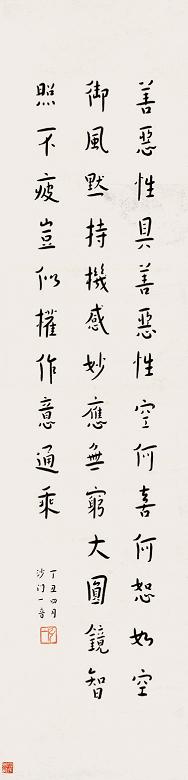 善惡性具善惡性空何喜何恕如空
御風默持機感妙應無窮大圓鏡智
照不疲豈似權作意通乘
丁丑四月
沙门一音